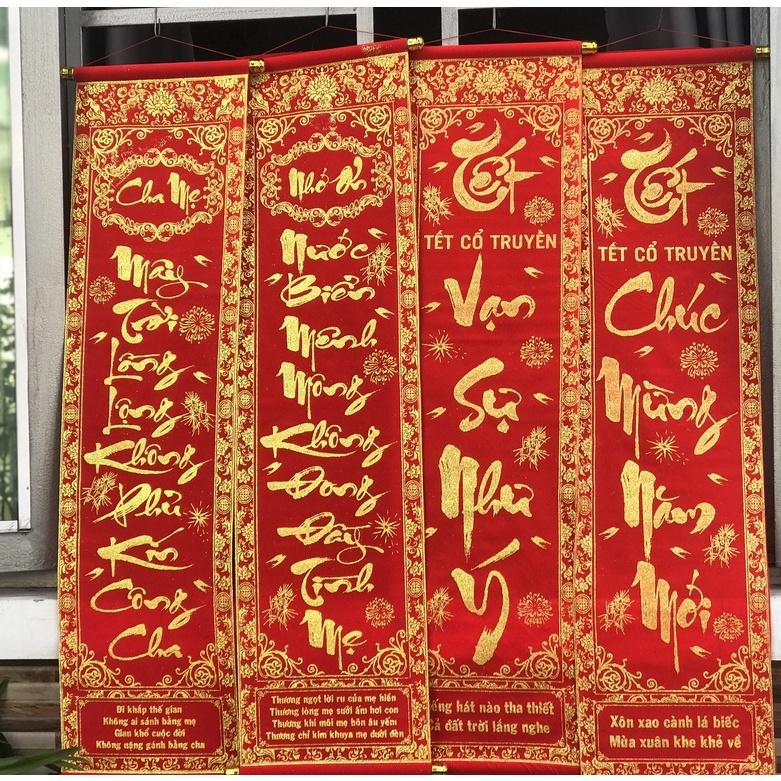 Cha Mẹ
Mây
Trời
Lồng
Lộng
Không
Phủ
Kín
Công
Cha
Đi khắp thế gian
Không ai sánh bằng mẹ
Gian khổ cuộc đời
Không nặng gánh bằng cha
Nhớ Ơn
Nước
Biển
Mênh
Mông
Không
Đong
Đầy
Tình
Mẹ
Thương ngọt lời ru của mẹ hiền
Thương lòng mẹ sưởi ấm hơi con
Thương khi môi mẹ hôn âu yếm
Thương chỉ kim khuya mẹ dưới đèn
Tết
TẾT CỔ TRUYỀN
Vạn
Sự
Như
Ý
hát nào tha thiết
đất trời lắng nghe
Tết
TẾT CỔ TRUYỀN
Chúc
Mừng
Năm
Mới
Xôn xao cành lá biếc
Mùa xuân khe khẽ về